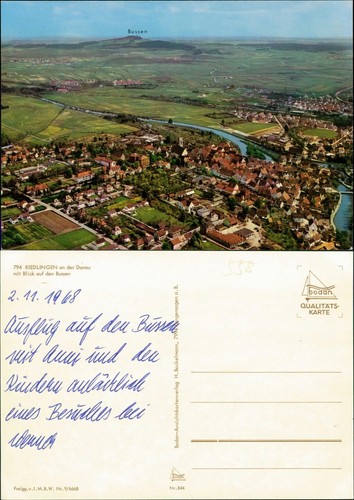 Bussen
794 RIEDLINGEN an der Donau
mit Blick auf den Bussen
2. 11. 1968
Ausflug auf den Bussen
mit Anni und den
Kindern anläßlich
eines Besuches bei
Bodan-Ansichtskartenverlag H. Bockelmann,
bodan
QUALITÄTS-
KARTE
bodan
Freigg. v. I. M. B. W. Nr. 9/6668
Nr. 844